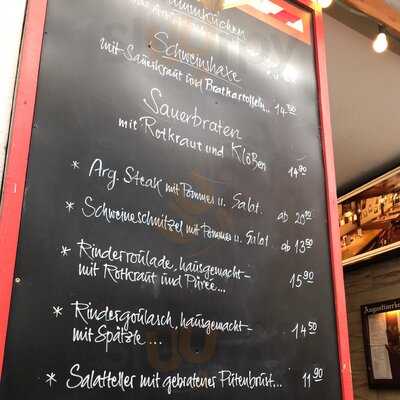 Flammkuchen
Schweinshaxe
mit Sauerkraut und Bratkartoffeln... 14 50
Sauerbraten
mit Rotkraut und Klößen 14 90
* Arg. Steak mit Pommes u. Salat. ab 20
* Schweineschnitzel mit Pommes u. Salat ab 13 90
* Rinderroulade, hausgemacht-
mit Rotkraut und Püree... 15 90
* Rindergoulasch, hausgemacht-
mit Spätzle... 14 50
* Salatteller mit gebratener Putenbrust... 11 90